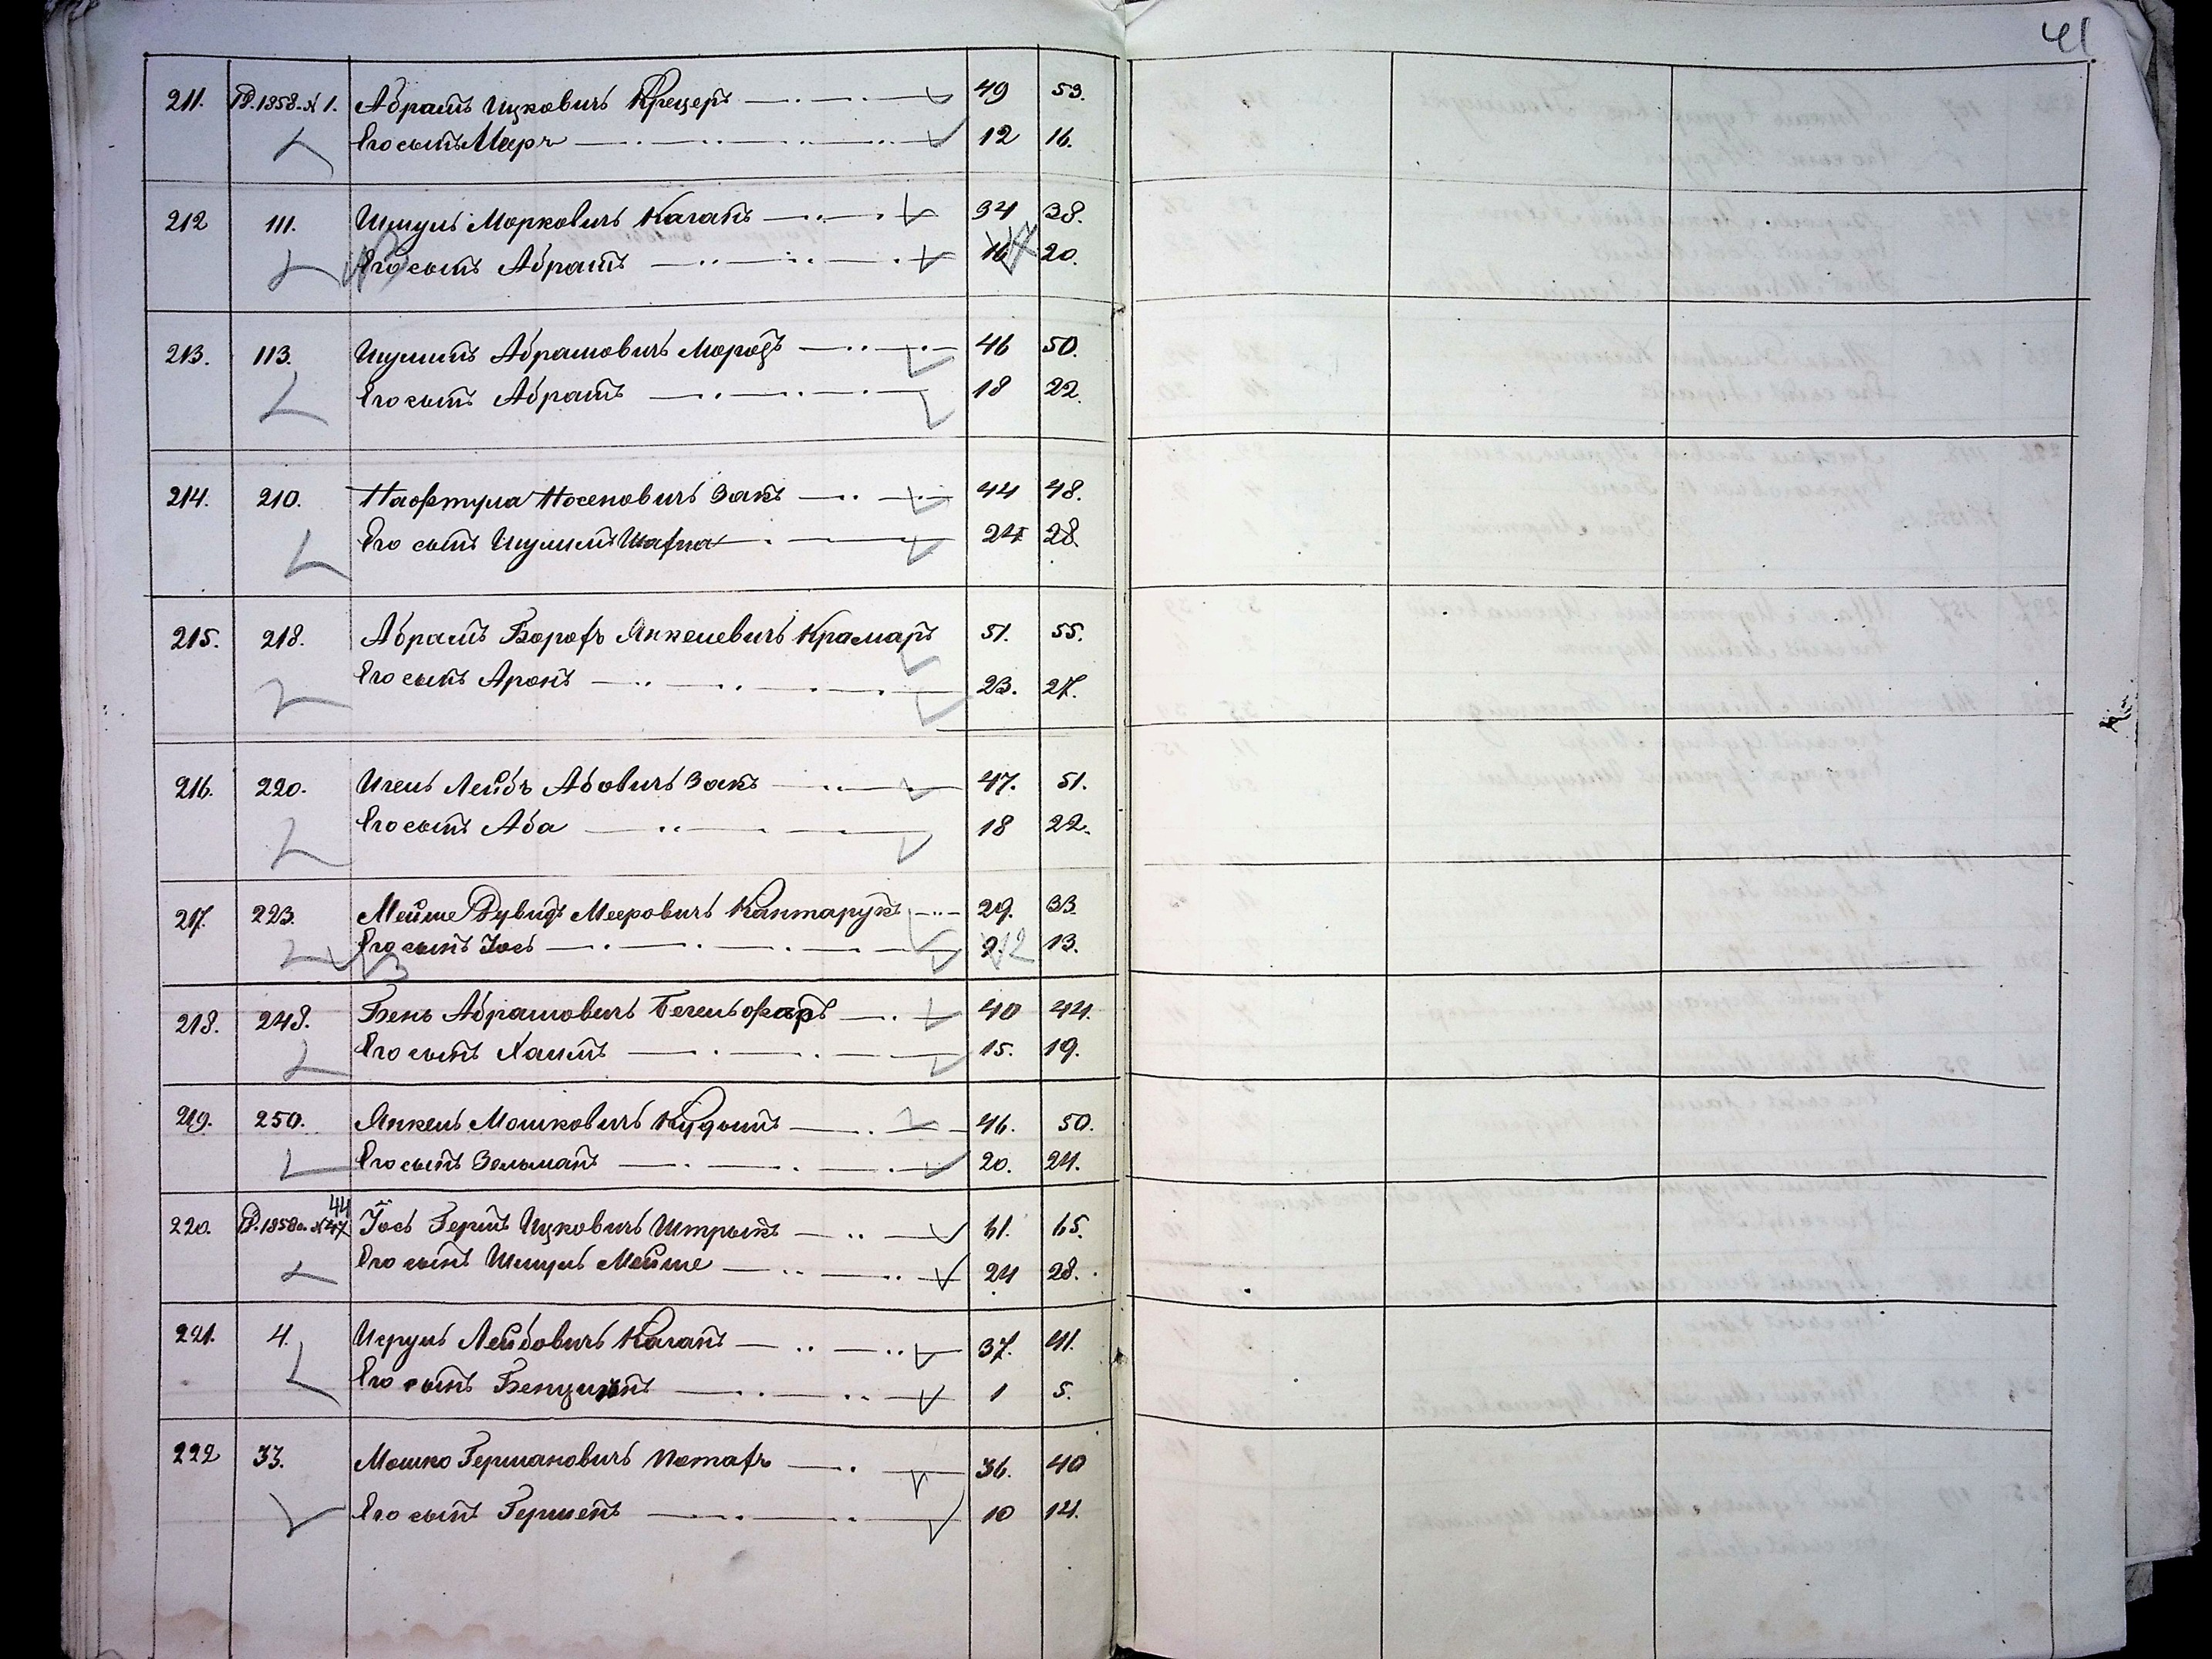 41
211. Р. 1858. № 1. Абрамъ Ицковичъ Крецеръ 49 53.
Его сынъ Мееръ 12 16.
212 111. Шмуль Морковичъ Каганъ 34 38.
Его сынъ Абрамъ 16 20.
213. 113. Шулимъ Абрамовичъ Морозъ 46 50.
Его сынъ Абрамъ 18 22.
214. 210. Нафтула Носеновичъ Закъ 44 48.
Его сынъ Шулимъ Шахна 24 28.
215. 218. Абрамъ Борохъ Янкелевичъ Крамаръ 51. 55.
Его сынъ Аронъ 23. 27.
216. 220. Ихель Лейбъ Абовичъ Закъ 47. 51.
Его сынъ Аба 18 22.
217. 223. Мейше Дувидъ Мееровичъ Кантарукъ 29. 33.
Его сынъ Іось 9. 12 13.
218. 248. Бень Абрамовичъ 40 44.
Его сынъ Хаимъ 15. 19.
219. 250. Янкель Мошковичъ 46. 50.
Его сынъ Зельманъ 20. 24.
44
220. Р. 1858 г. № 47 Іось Гершъ Ицковичъ Штрыкъ 61. 65.
Его сынъ Шмуль Мейше 24 28.
221. 4. Исруль Лейбовичъ Каганъ 37. 41.
Его сынъ Бенционъ 1 5.
222 33. Мошко Гершановичъ Потахъ 36. 40
Его сынъ Гершенъ 10 14.